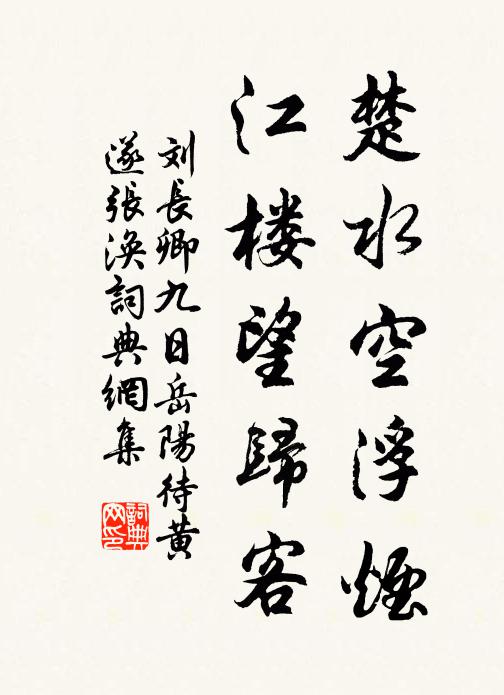 楚水空浮煙
江楼望歸客
刘長卿九日岳陽待黄
遂張渙詞典網集
詞典
网印